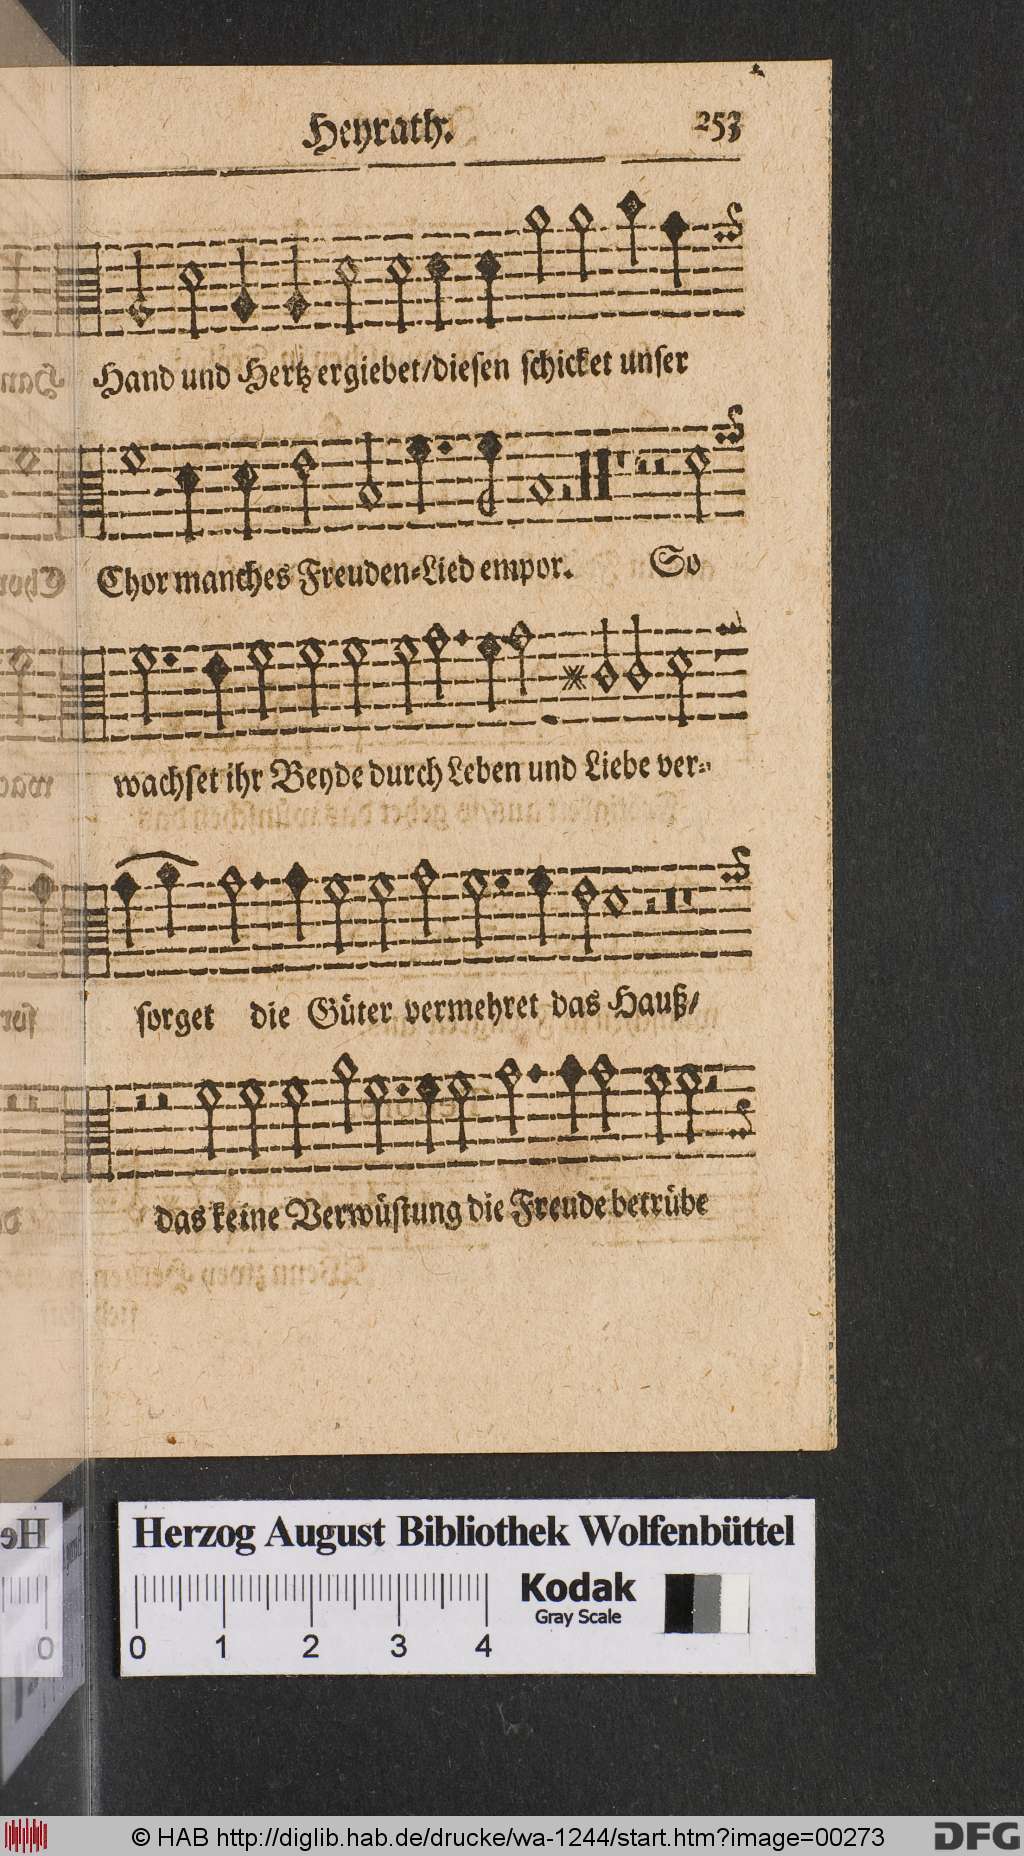 Heyrath.
253
Hand und Hertz ergiebet/diesen schicket unser
Chor manches Freuden-Lied empor. So
wachset ihr Beyde durch Leben und Liebe ver-
sorget die Güter vermehret das Hauß/
das keine Verwüstung die Freude betrübe
Herzog August Bibliothek Wolfenbüttel
Kodak
Gray Scale
0 1 2 3 4
© HAB http://diglib.hab.de/drucke/wa-1244/start.htm?image=00273
DFG